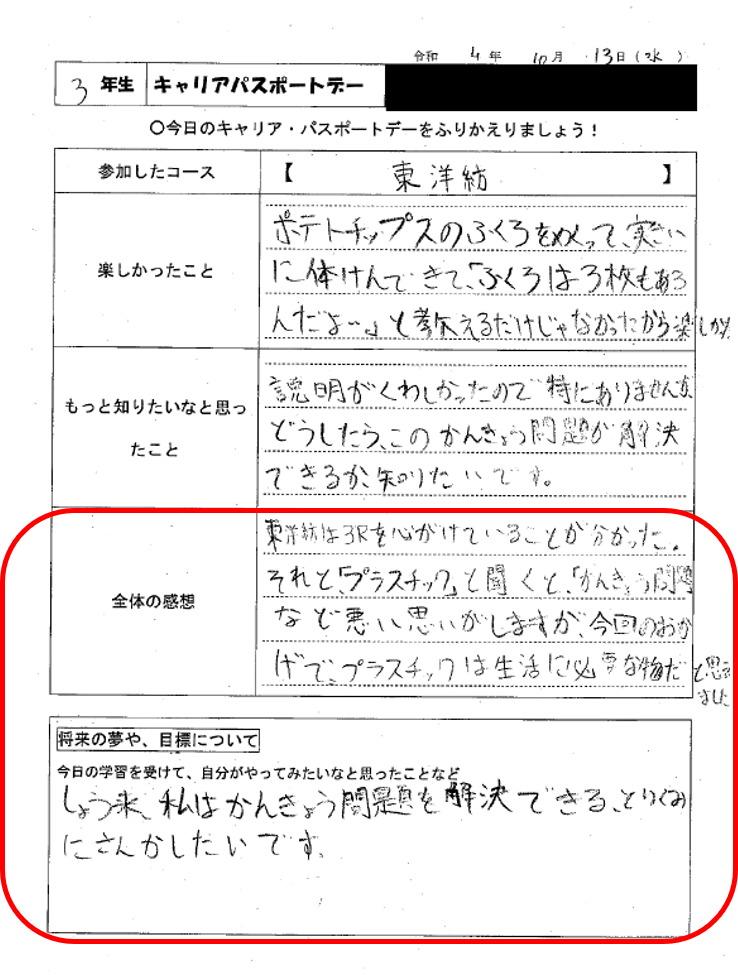 令和 4年 10月 13日(水)
3年生 キャリアパスポートデー
〇今日のキャリア・パスポートデーをふりかえりましょう！
参加したコース 【 東洋紡 】
楽しかったこと
ポテトチップスのふくろをめくって、実さい
に体けんできて、「ふくろは3枚もある
んだよ…」と教えるだけじゃなかったから楽しかった
もっと知りたいなと思っ
たこと
説明がくわしかったので特にありませんが、
どうしたら、このかんきょう問題が解決
できるか、知りたいです。
全体の感想
東洋紡は3Rを心がけていることが分かった。
それと、「プラスチック」と聞くと、「かんきょう問題
など悪い思いがしますが、今回のおか
げで、プラスチックは生活に必要な物だと思い
ました
将来の夢や、目標について
今日の学習を受けて、自分がやってみたいなと思ったことなど
しょう来、私はかんきょう問題を解決できる、とりくみ
にさんかしたいです。